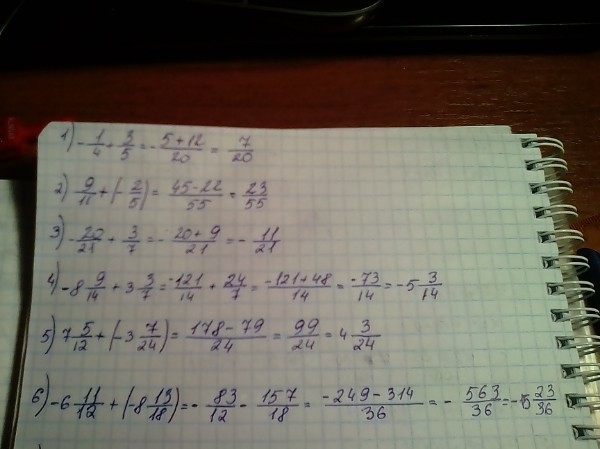 1) - 1/4 + 3/5 = - 5+12/20 = 7/20
2) 9/11 + (- 2/5) = 45-22/55 = 23/55
3) - 20/21 + 3/7 = - 20+9/21 = - 11/21
4) -8 9/14 + 3 3/7 = -121/14 + 24/7 = -121+48/14 = -73/14 = -5 3/14
5) 7 5/12 + (-3 7/24) = 178-79/24 = 99/24 = 4 3/24
6) -6 11/12 + (-8 13/18) = - 83/12 - 157/18 = -249-314/36 = - 563/36 = -15 23/36